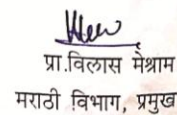 प्रा.विलास मेश्राम
मराठी विभाग, प्रमुख